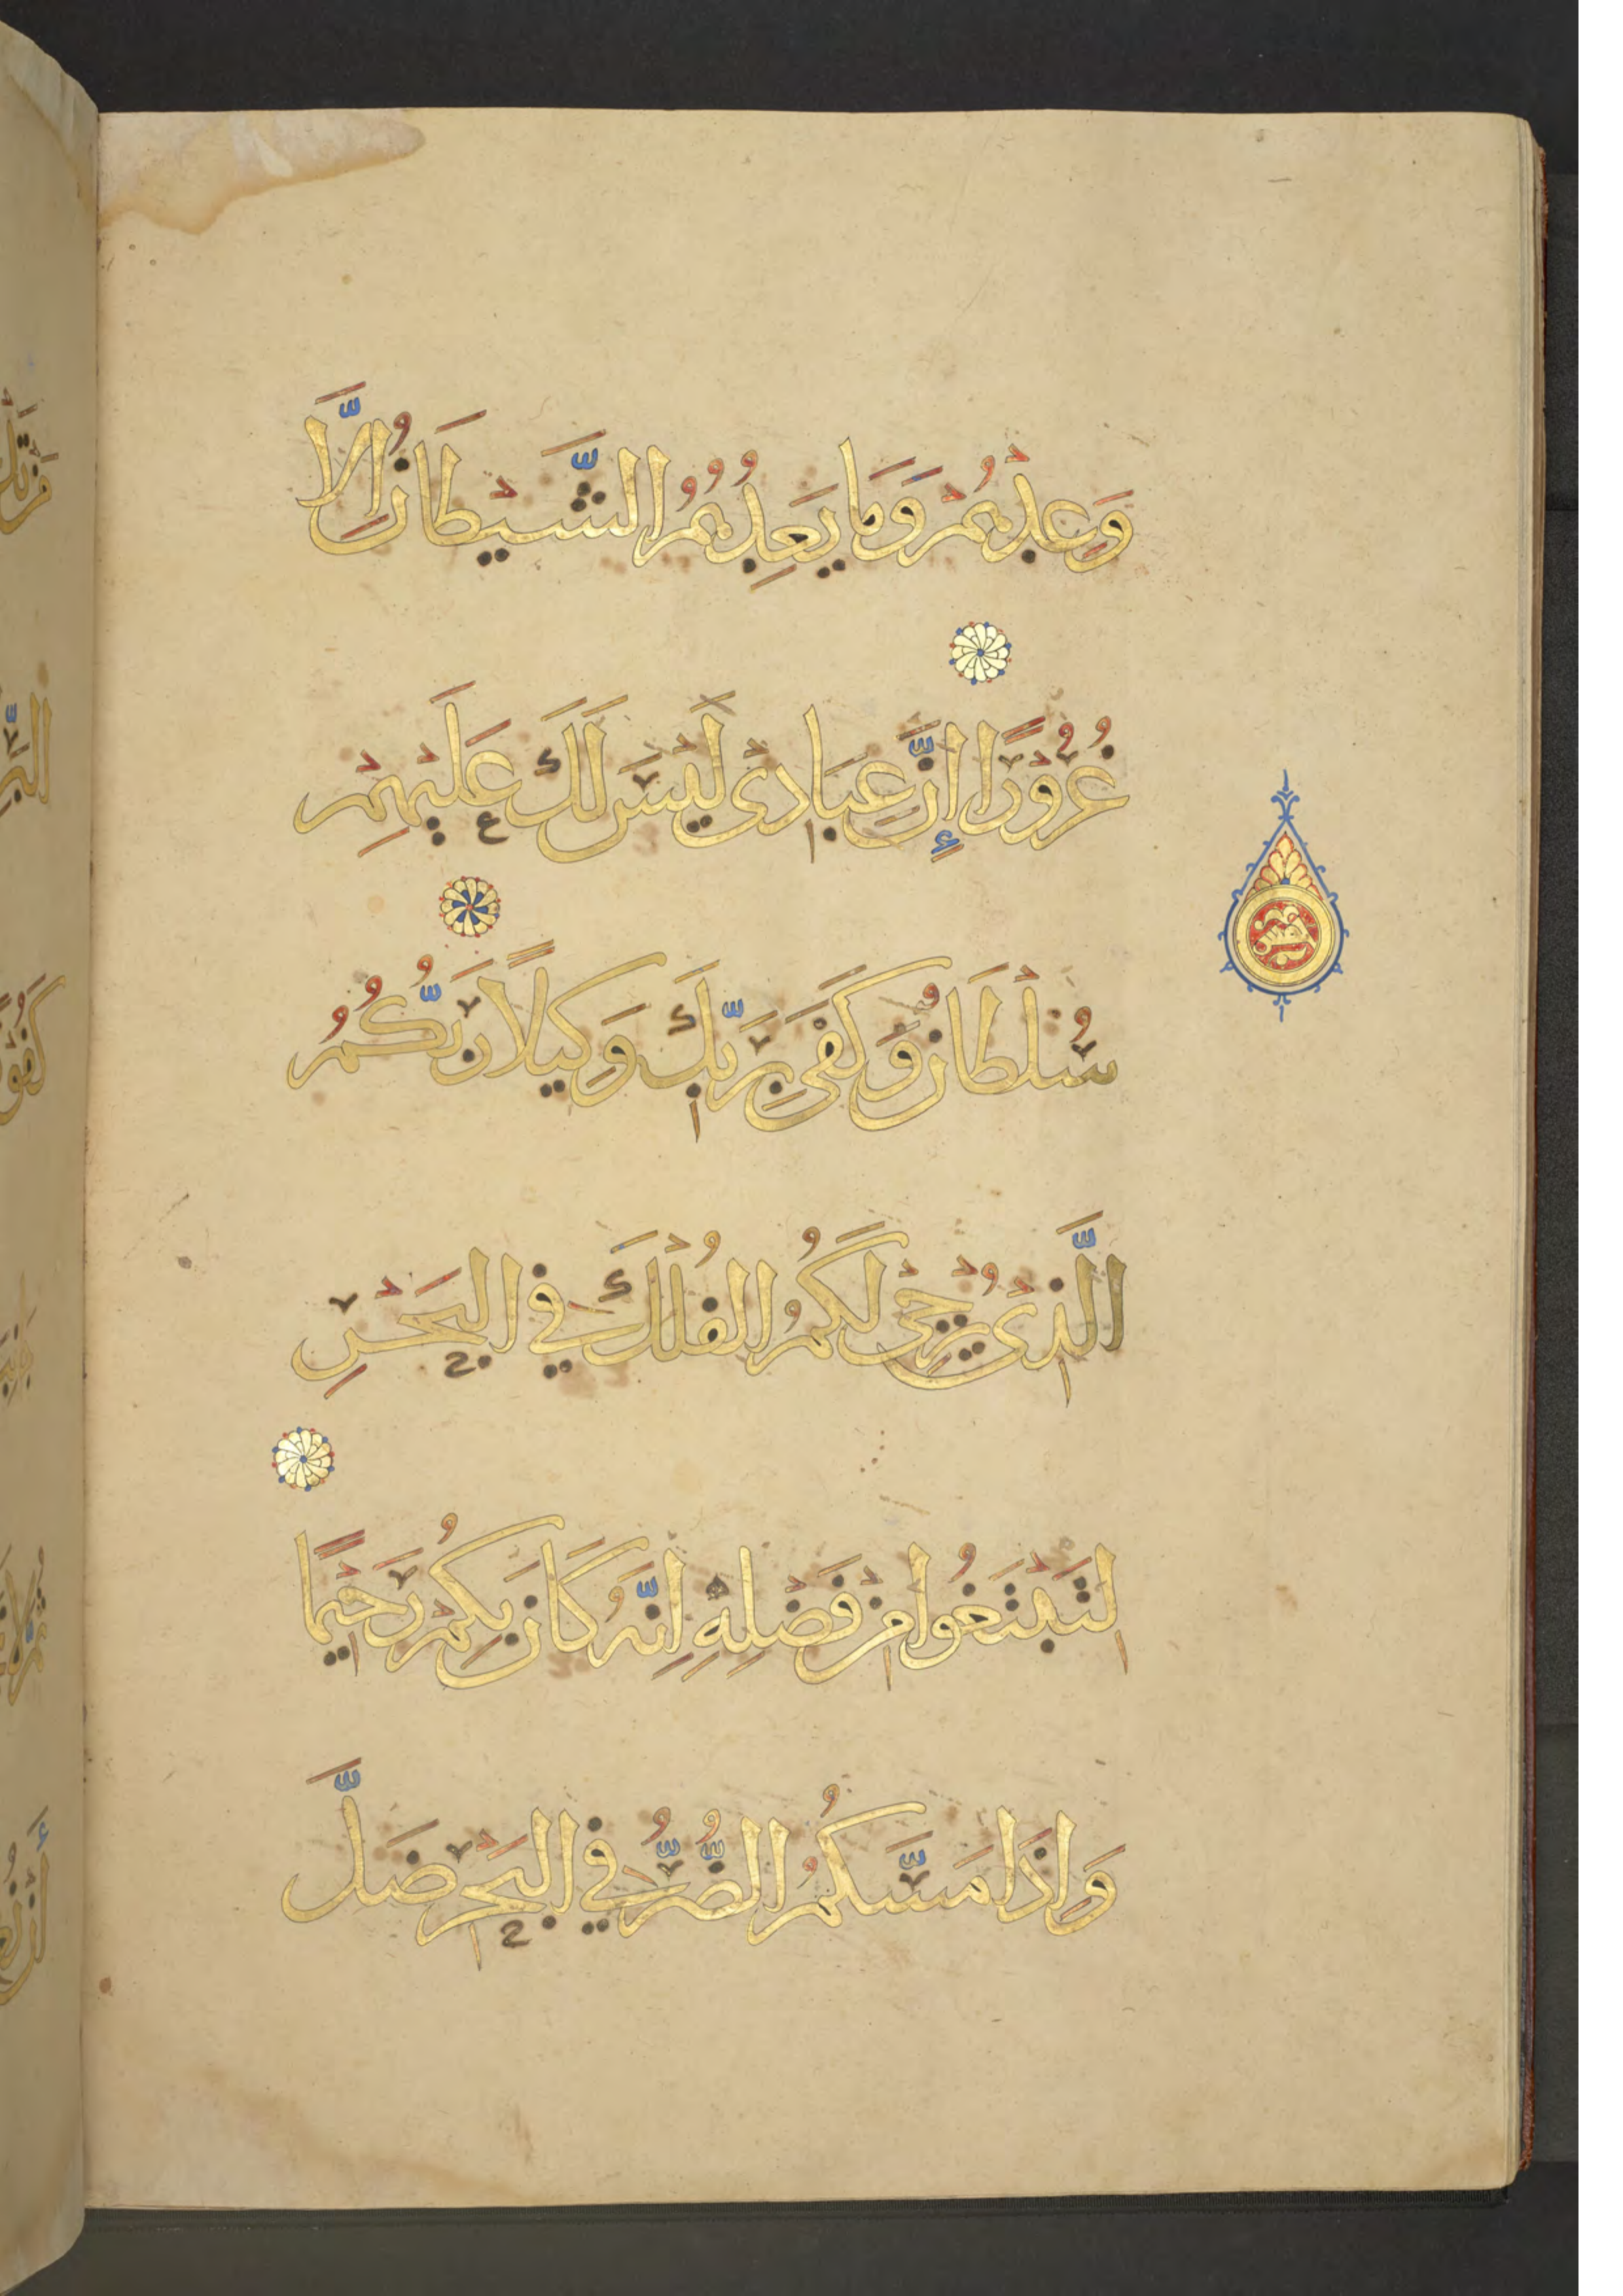 وَعِدْهُمْ وَمَا يَعِدُهُمُ الشَّيْطَانُ إِلَّا
غُرُورًا إِنَّ عِبَادِى لَيْسَ لَكَ عَلَيْهِمْ
سُلْطَانٌ وَكَفَى بِرَبِّكَ وَكِيلًا رَبُّكُمُ
الَّذِى يُزْجِى لَكُمُ الْفُلْكَ فِى الْبَحْرِ
لِتَبْتَغُوا مِنْ فَضْلِهِ إِنَّهُ كَانَ بِكُمْ رَحِيمًا
وَإِذَا مَسَّكُمُ الضُّرُّ فِى الْبَحْرِ ضَلَّ